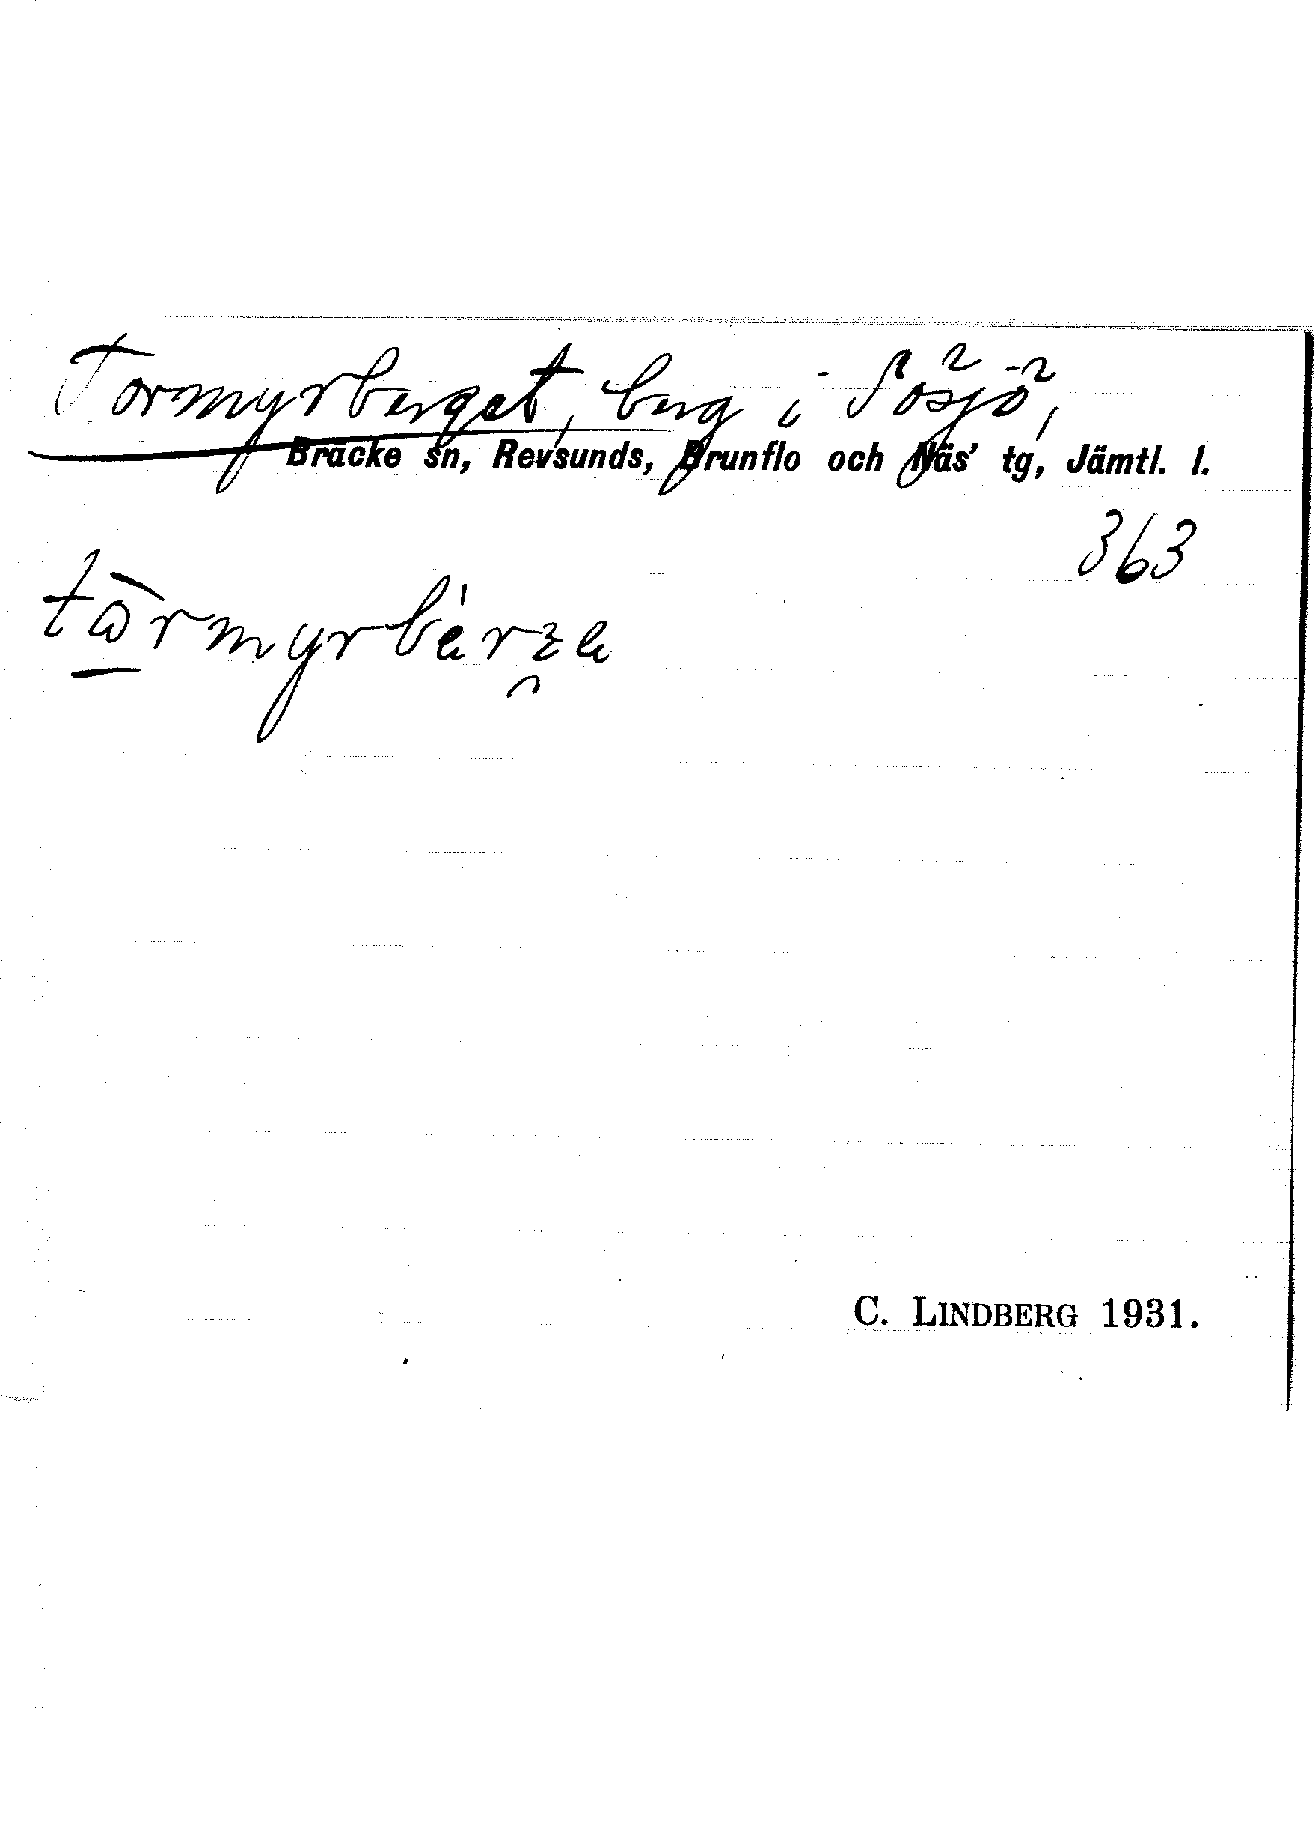 Tormyrberget, berg i Sösjö,
Bräcke sn, Revsunds, Brunflo och Näs' tg, Jämtl. l.
363
C. LINDBERG 1931.